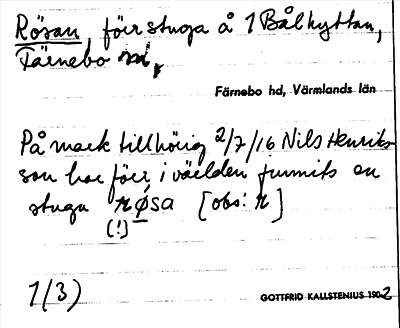 Rösan, förr stuga å 1 Bålhyttan,
Färnebo sn,
Färnebo hd, Värmlands län
På mark tillhörig 2/7/16 Nils Henriks-
son har förr i världen funnits en
stuga røsa [obs: r]
(!)
1/3)
GOTTFRID KALLSTENIUS 1902